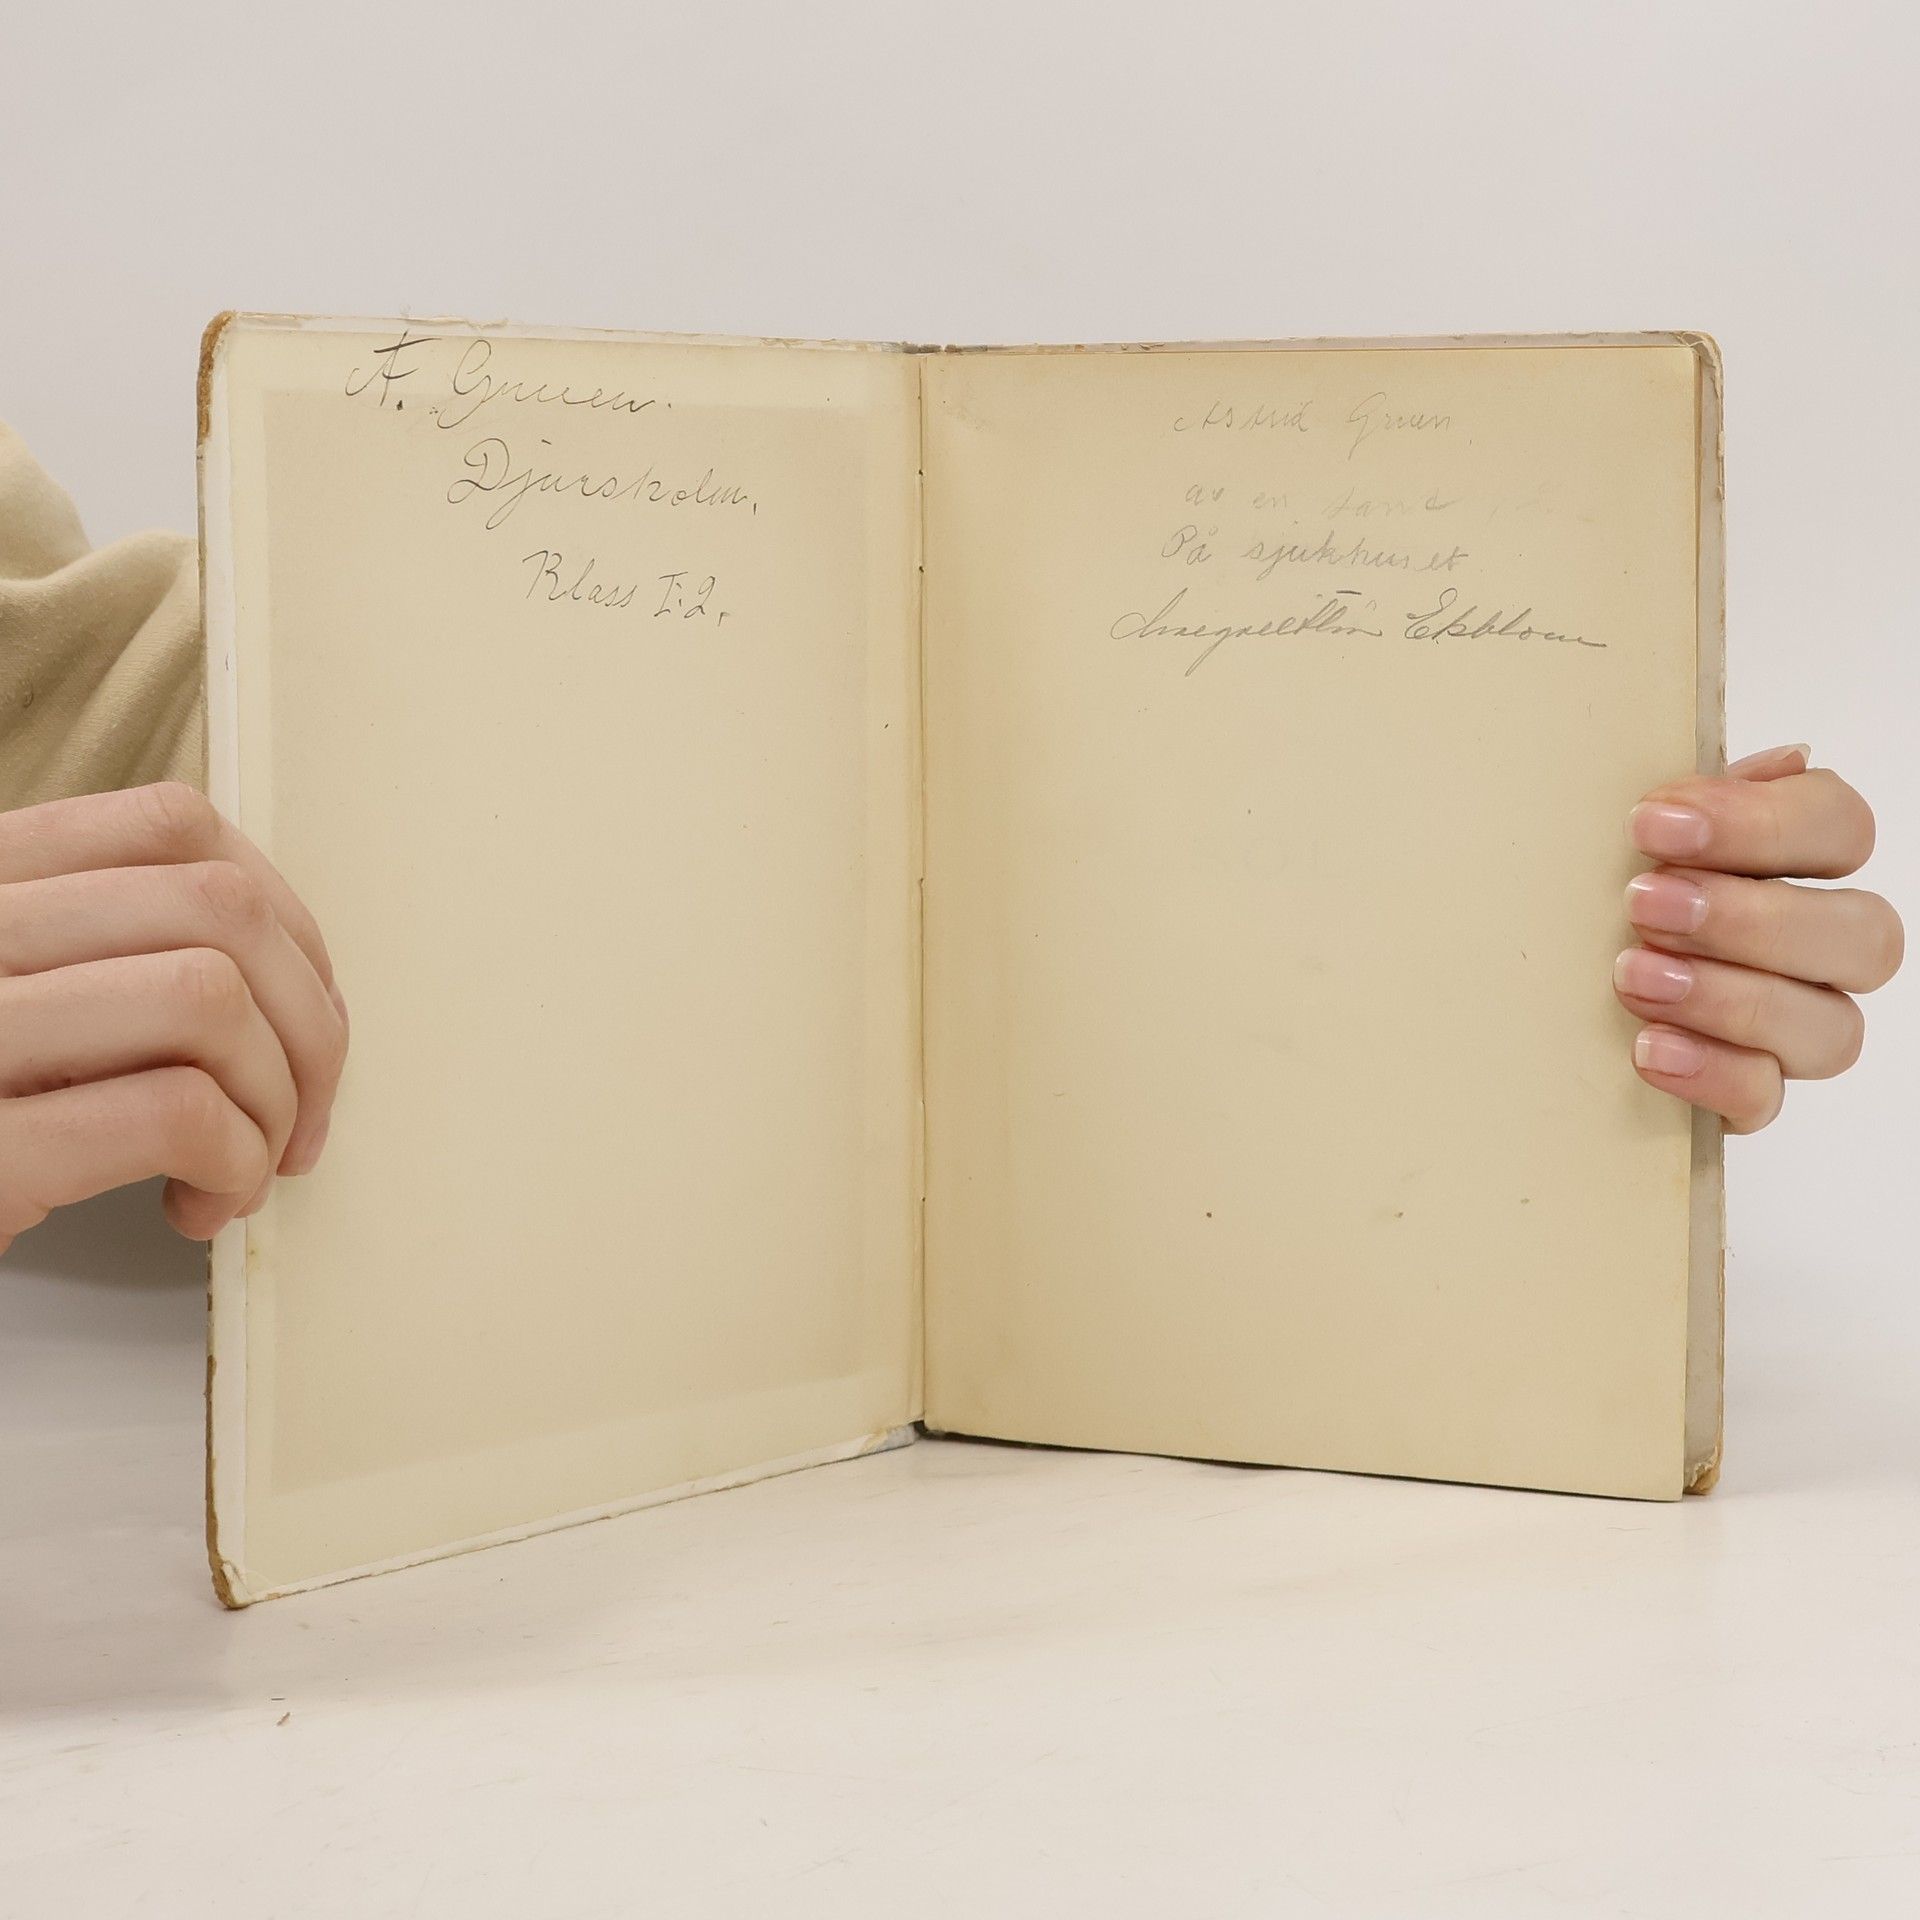 A. Gruen.
Djursholm.
Klass I:2.
Astrid Gruen.
av en
På sjukhuset
Ekblom